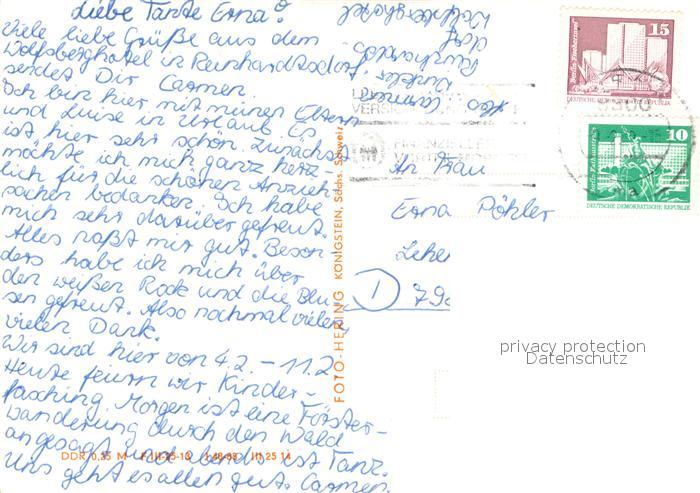 Liebe Tante Erna!
Viele liebe Grüße aus dem
Wolfsberghotel in Reinhardtsdorf
sendet Dir Carmen.
Ich bin hier mit meinen Eltern
und Luise in Urlaub. Es
ist hier sehr schön. Zunächst
möchte ich mich ganz herz-
lich für die schönen Anzieh-
sachen bedanken. Ich habe
mich sehr darüber gefreut.
Alles paßt mir gut. Beson
ders habe ich mich über
den weißen Rock und die Blu
sen gefreut. Also nochmal vielen
vielen Dank.
Wir sind hier von 4.2. – 11.2
Heute feiern wir Kinder-
fasching. Morgen ist eine Förster-
wanderung durch den Wald
angesagt und abends ist Tanz.
Uns geht es allen gut. Carmen.
Carmen
FOTO-HERING KÖNIGSTEIN, Sächs. Schweiz
DDR 0,25 M
III 25 14
15
Berlin, Fischerinsel
DEUTSCHE DEMOKRATISCHE REPUBLIK
10
DEUTSCHE DEMOKRATISCHE REPUBLIK
FINANZIELLER
An Frau
Erna Pöhler
1
privacy protection
Datenschutz